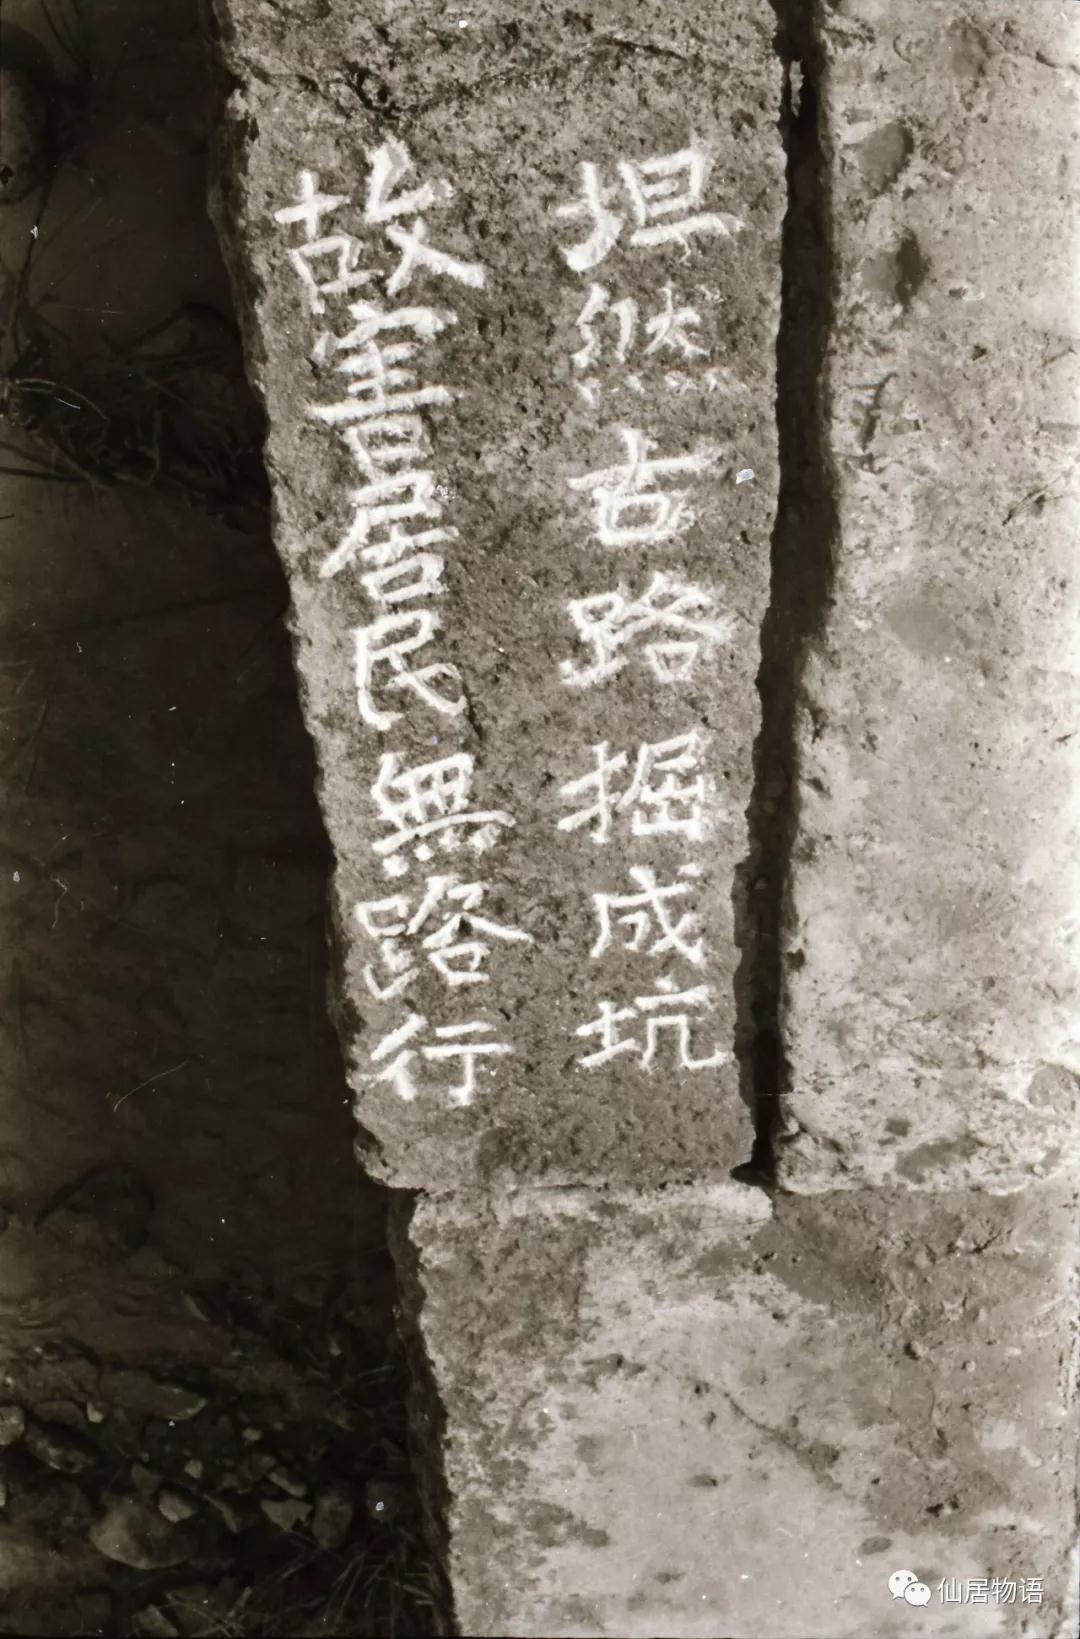 坦然古路掘成坑
故害居民無路行
仙居物语